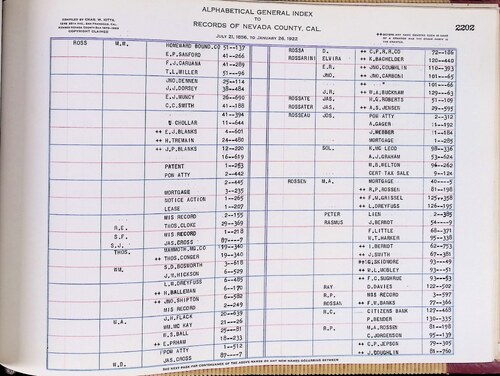 ALPHABETICAL GENERAL INDEX
TO
RECORDS OF NEVADA COUNTY, CAL.
2202
JULY 21, 1856, TO JANUARY 26, 1922
COPYRIGHT CLAIMED
ROSS W.M. HOMEWARD BOUND.CO 51--137
E.P.SANFORD 41--266
F.J.CARUANA 41--289
T.L.MILLER 51--96
JNO.DENNEN 25--114
J.J.DORSEY 38--484
E.J.MUNCY 26--690
C.C.SMITH 41--188
41--394
CHOLLAR 11--644
++ E.J.BLANKS 4--601
++ H.TREMAIN 24--480
++ J.P.BLANKS 12--220
16--619
PATENT 1--253
POW ATTY 2--442
2--445
MORTGAGE 3--235
NOTICE ACTION 1--265
LEASE 1--207
MIS RECORD 2--155
H.E. THOS.CLOKE 29--369
S.F. MIS RECORD 1--218
S.J. JAS.CROSS 87----7
THOS. MAMMOTH.MG.CO 19--340
++ THOS.CONGER 19--340
WM. S.D.BOSWORTH 3--618
J.W.HICKSON 6--529
L.W.DREYFUSS 6--485
++ H.HALLEMAN 6--170
++ JNO.SHIPTON 6--582
MIS RECORD 2--249
W.A. J.H.FLACK 20--639
WM.MC KAY 21---26
H.S.BALL 25---81
++ E.PRHAM 18--233
POW ATTY 1--512
W.B. JAS.CROSS 87----7
ROSSA D. ++ E.P.N.H.CO 72--186
ROSSARINI ELVIRA ++ K.BACHELDER 120--440
E.R. ++ JNO.COUGHLIN 110--393
J. ++ JNO.CARBONI 101---65
++ " 101---66
J.R. ++ H.J.BUCKNAM 129---63
ROSSATE JAS. H.G.ROBERTS 51--109
ROSSATER JAS. ++ A.S.JENSEN 29--595
ROSSEAU JOS. POW ATTY 2--312
A.GAGER 11--192
J.WEBBER 11--184
MORTGAGE 1--285
SOL. K.MC LECO 98--336
A.J.GRAHAM 53--624
W.B.RELTON 94--262
CERT TAX SALE 9--124
ROSSEN M.A. MORTGAGE 40----5
++ R.P.ROSSEN 81--198
++ F.M.GRISSEL 125--358
++ L.DREYFUSS 126--195
PETER LIEN 2--385
RASMUS J.BERNOT 54----9
F.LITTLE 68--371
W.T.HARKER 95--338
++ I.BERNOT 62--753
++ J.SMITH 67--381
++ G.SKIDMORE 93---49
++ W.L.MOBLEY 93---51
++ F.C.SUGHRUE 93---53
RAY D.DAVIES 122--502
R.P. MIS RECORD 3--597
ROSSAN ++ F.W.BANKS 77--366
R.C. CITIZENS BANK 127--468
P.BENDER 130--335
R.P. M.A.ROSSEN 81--198
C.JORGENSON 95--139
++ C.P.JEPSON 79--305
++ J.COUGHLIN 81--760
SEE NEXT PAGE FOR CONTINUANCE OF THE ABOVE NAMES OR ANY NEW NAMES OCCURRING BETWEEN